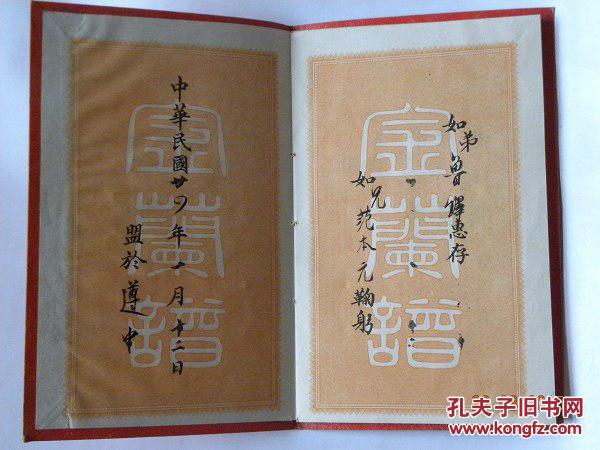 如弟魯 鐸惠存
如兄范本元鞠躬
金蘭譜
中華民國廿四年一月十二日
盟於遵中
金蘭譜
孔夫子旧书网
KONGFZ.COM